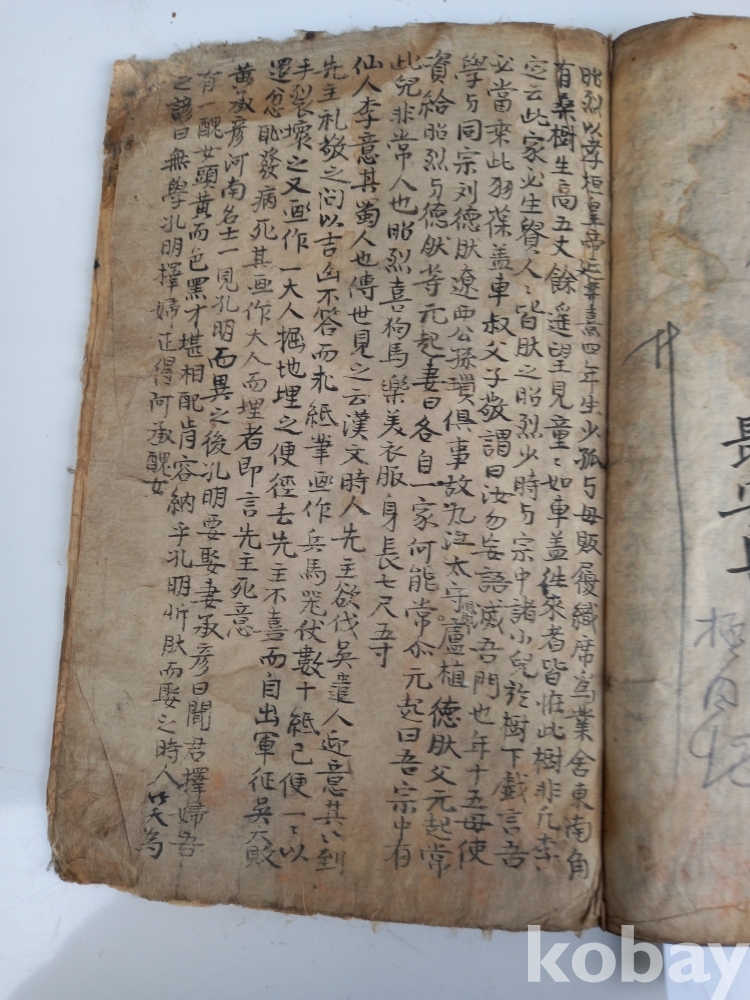 昭烈以孝桓皇帝延熹四年生少孤与母販履織席爲業舍東南角
有桑樹生高五丈餘遥望見童〻如車盖徃來者皆恠此樹非凡李
定云此家必生貴人〻皆肰之昭烈少時与宗中諸小兒於樹下戱言吾
必當乘此羽葆盖車叔父子敬謂曰汝勿妄語滅吾門也年十五母使
學与同宗刘德肰遼西公孫瓚俱事故九江太守盧植德肰父元起常
資給昭烈与德肰等元起妻曰各自一家何能常尒元起曰吾宗中有
此兒非常人也昭烈喜狗馬樂美衣服身長七尺五寸
仙人李意其蜀人也傳世見之云漢文時人先主欲伐吳遣人迎意其〻到
先主礼敬之问以吉凶不答而求紙筆畫作兵馬器仗數十紙已便一〻以
手裂壞之又畫作一大人掘地埋之便徑去先主不喜而自出軍征吳大敗
還忿耻發病死其畫作大人而埋者即言先主死意
黄承彦河南名士一見孔明而異之後孔明要娶妻承彦曰聞君擇婦吾
有一醜女頭黄而色黑才堪相配肯容納乎孔明忻肰而娶之時人以笑爲
之諺曰無學孔明擇婦正得阿承醜女
最
kobay